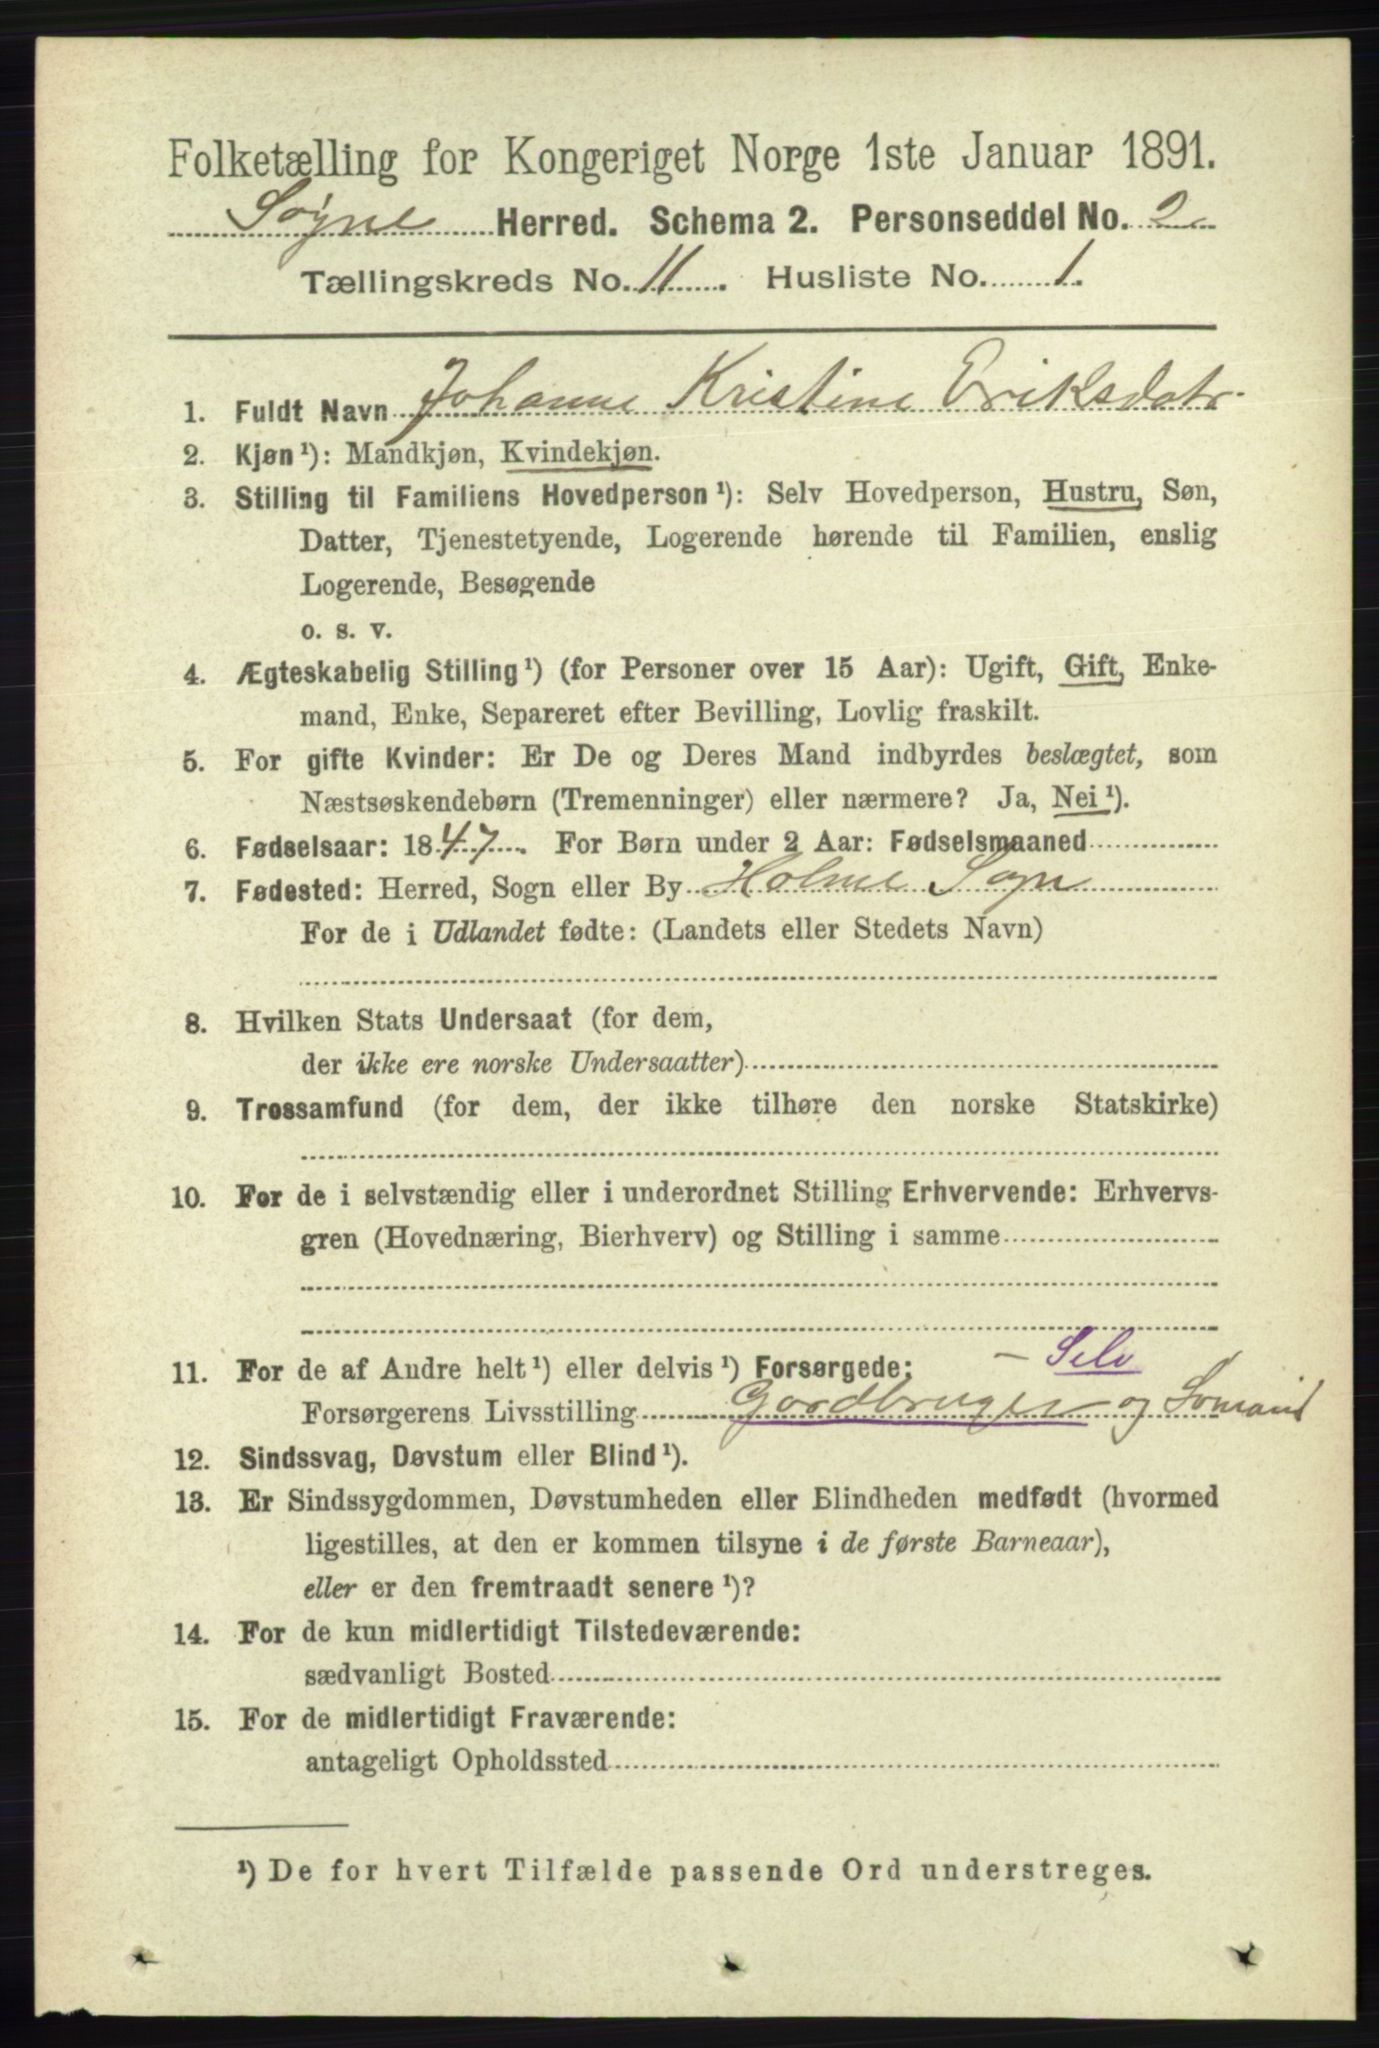 Folketælling for Kongeriget Norge 1ste Januar 1891.
Søgne Herred. Schema 2. Personseddel No. 2
Tællingskreds No. 11. Husliste No. 1.
1. Fuldt Navn Johanne Kristine Eriksdatr.
2. Kjøn¹): Mandkjøn, Kvindekjøn.
3. Stilling til Familiens Hovedperson¹): Selv Hovedperson, Hustru, Søn,
Datter, Tjenestetyende, Logerende hørende til Familien, enslig
Logerende, Besøgende
o. s. v.
4. Ægteskabelig Stilling¹) (for Personer over 15 Aar): Ugift, Gift, Enke-
mand, Enke, Separeret efter Bevilling, Lovlig fraskilt.
5. For gifte Kvinder: Er De og Deres Mand indbyrdes beslægtet, som
Næstsøskendebørn (Tremenninger) eller nærmere? Ja, Nei¹).
6. Fødselsaar: 1847. For Børn under 2 Aar: Fødselsmaaned
7. Fødested: Herred, Sogn eller By Holme Sogn
For de i Udlandet fødte: (Landets eller Stedets Navn)
8. Hvilken Stats Undersaat (for dem,
der ikke ere norske Undersaatter)
9. Trossamfund (for dem, der ikke tilhøre den norske Statskirke)
10. For de i selvstændig eller i underordnet Stilling Erhvervende: Erhvervs-
gren (Hovednæring, Bierhverv) og Stilling i samme
11. For de af Andre helt¹) eller delvis¹) Forsørgede: – Selv
Forsørgerens Livsstilling Gardbruger og Somand
12. Sindssvag, Døvstum eller Blind¹).
13. Er Sindssygdommen, Døvstumheden eller Blindheden medfødt (hvormed
ligestilles, at den er kommen tilsyne i de første Barneaar),
eller er den fremtraadt senere¹)?
14. For de kun midlertidigt Tilstedeværende:
sædvanligt Bosted
15. For de midlertidigt Fraværende:
antageligt Opholdssted
¹) De for hvert Tilfælde passende Ord understreges.